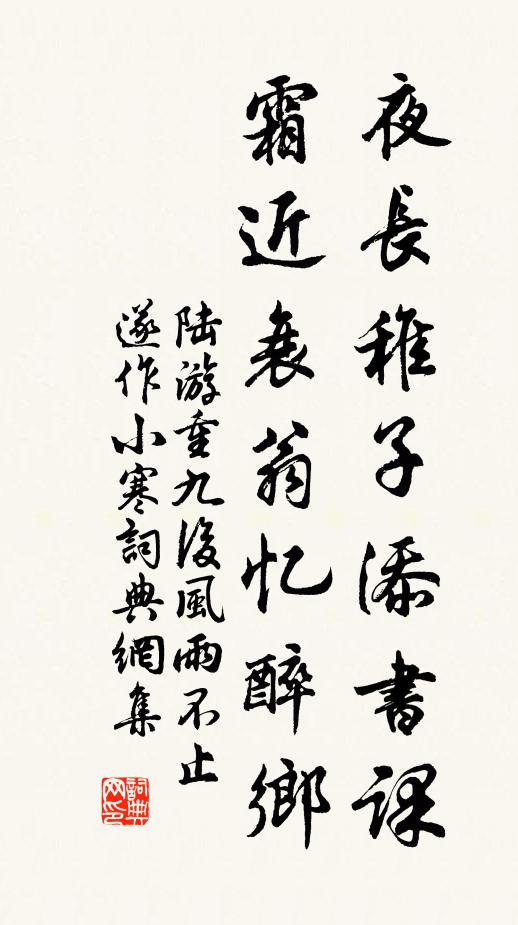 夜長稚子添書課
霜近衰翁忆醉鄉
陆游重九後風雨不止
遂作小寒詞典網集
詞典
网印